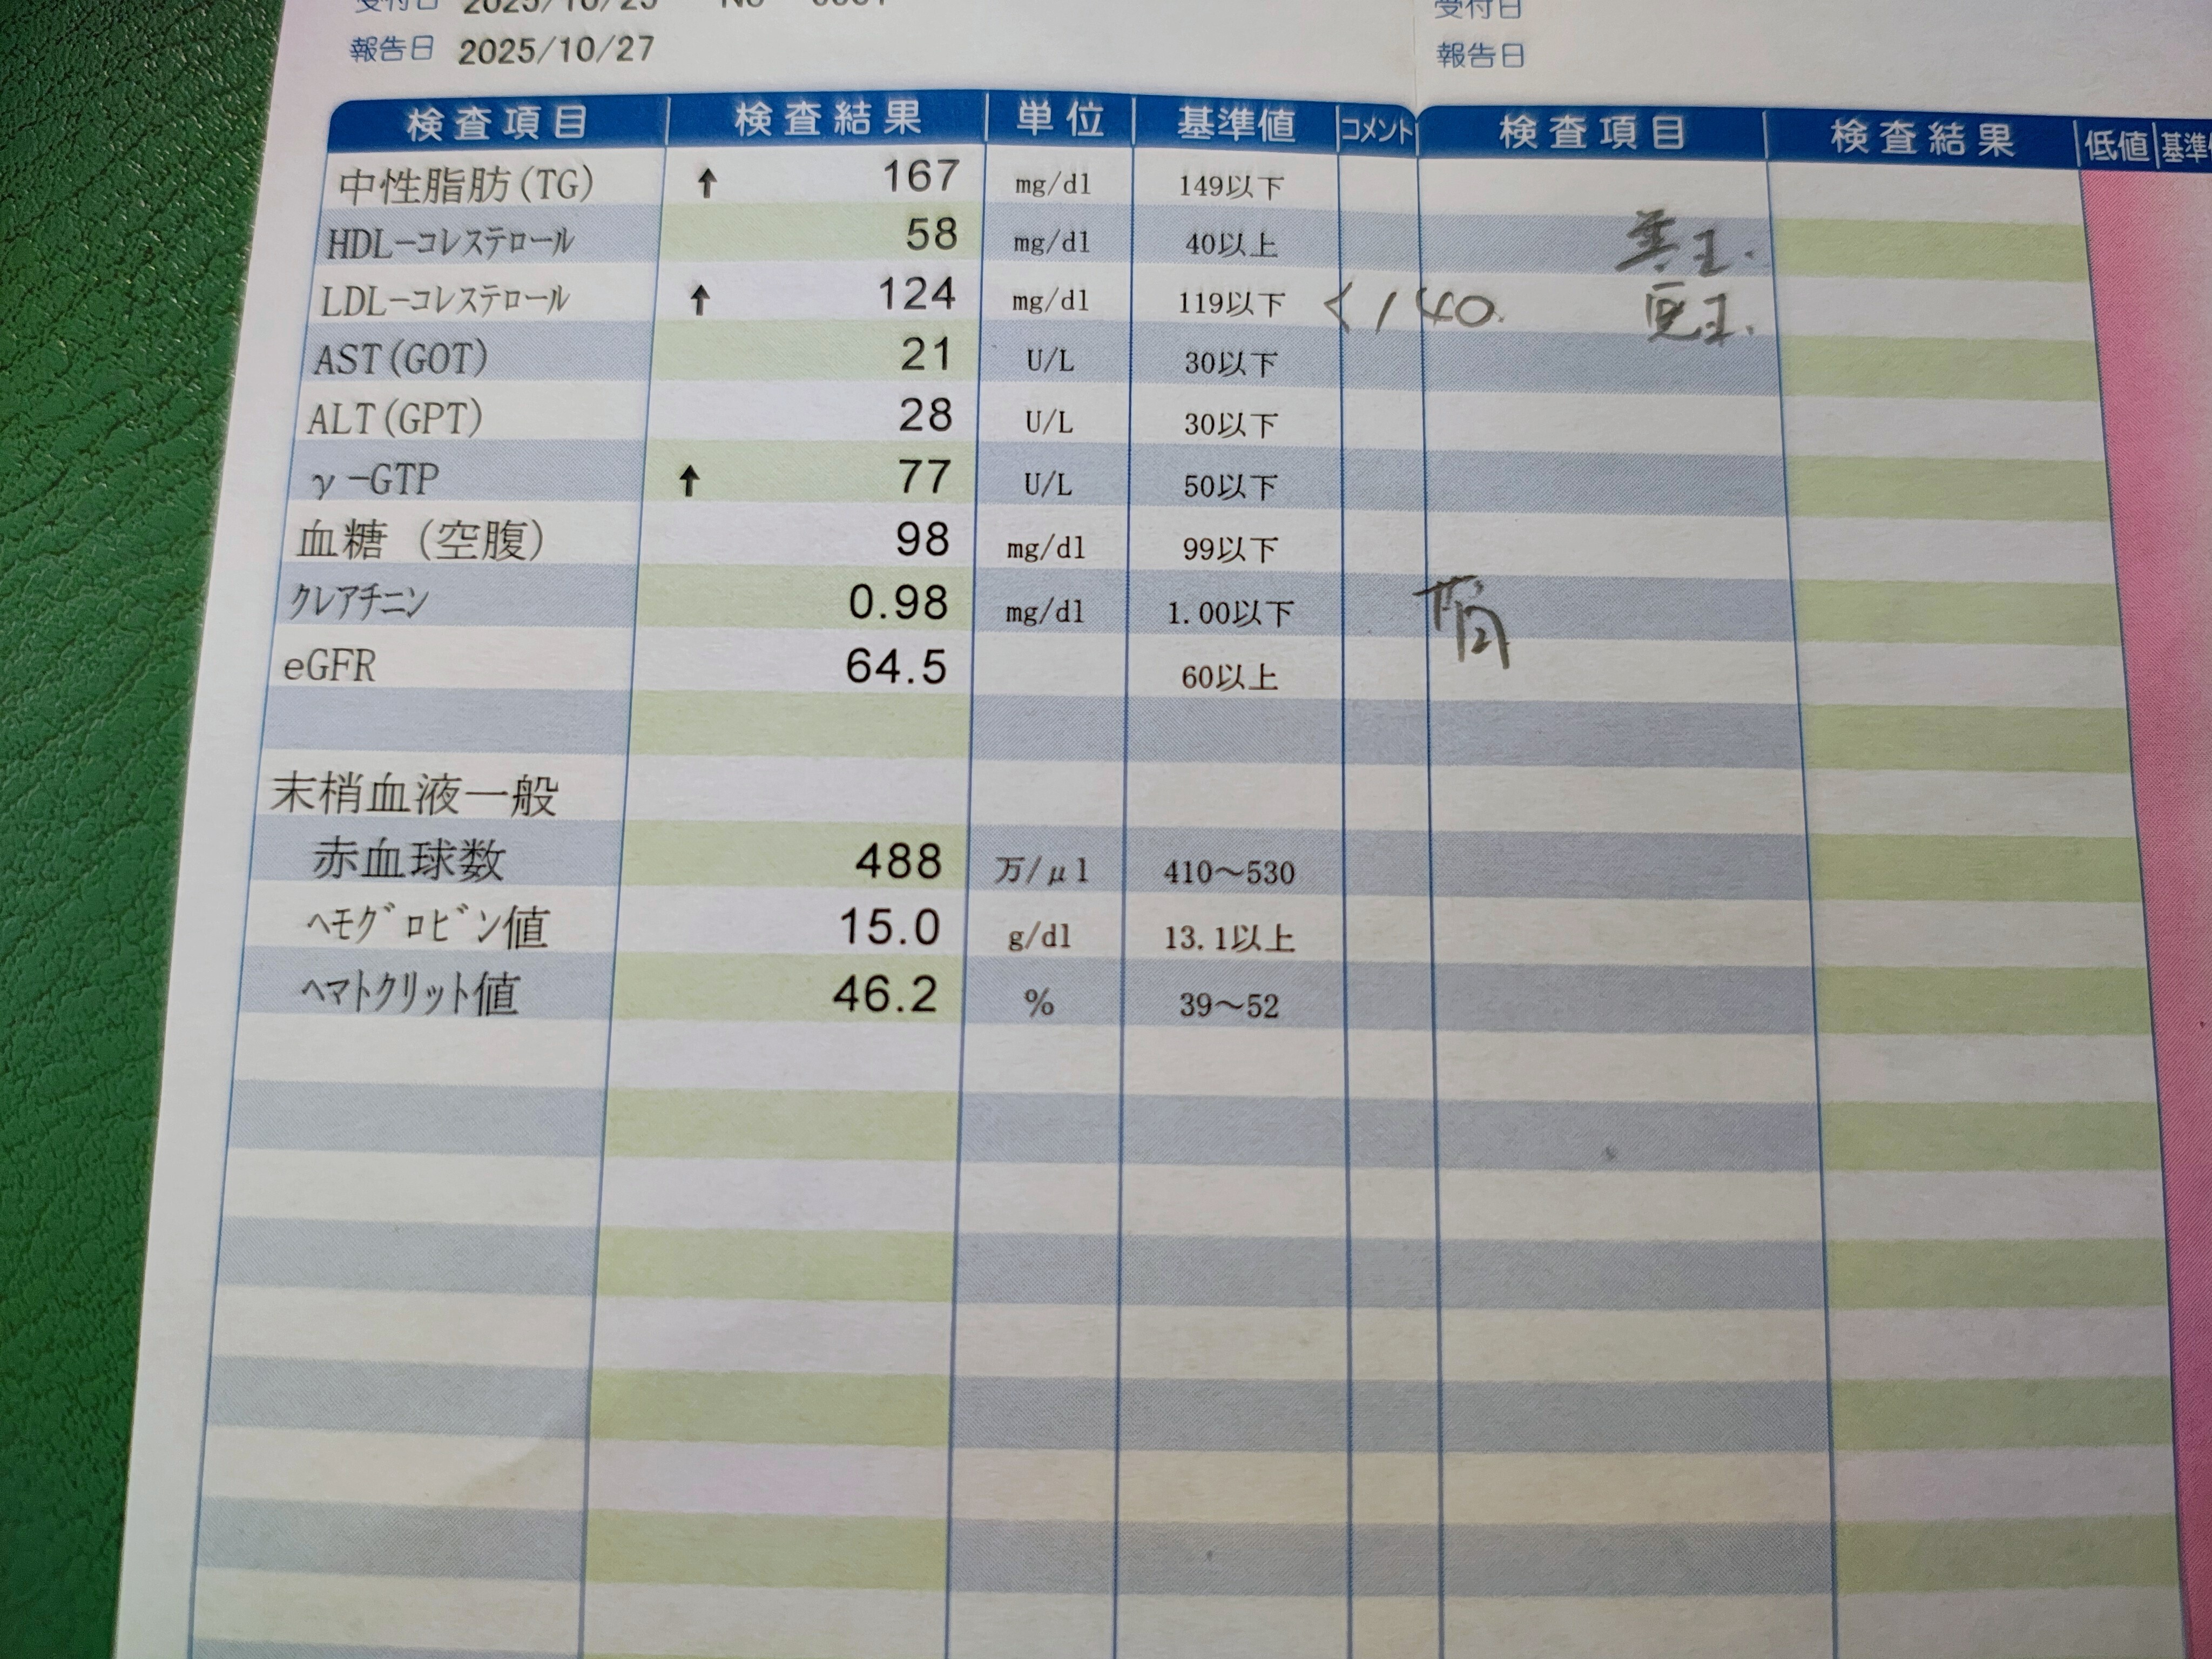 受付日 2025/10/25 No 受付日
報告日 2025/10/27 報告日
検査項目 検査結果 単位 基準値 コメント 検査項目 検査結果 低値 基準
中性脂肪(TG) ↑ 167 mg/dl 149以下
HDL-コレステロール 58 mg/dl 40以上
LDL-コレステロール ↑ 124 mg/dl 119以下 <140.
AST(GOT) 21 U/L 30以下
ALT(GPT) 28 U/L 30以下
γ-GTP ↑ 77 U/L 50以下
血糖 (空腹) 98 mg/dl 99以下
クレアチニン 0.98 mg/dl 1.00以下
eGFR 64.5 60以上
末梢血液一般
赤血球数 488 万/μl 410〜530
ヘモグロビン値 15.0 g/dl 13.1以上
ヘマトクリット値 46.2 % 39〜52